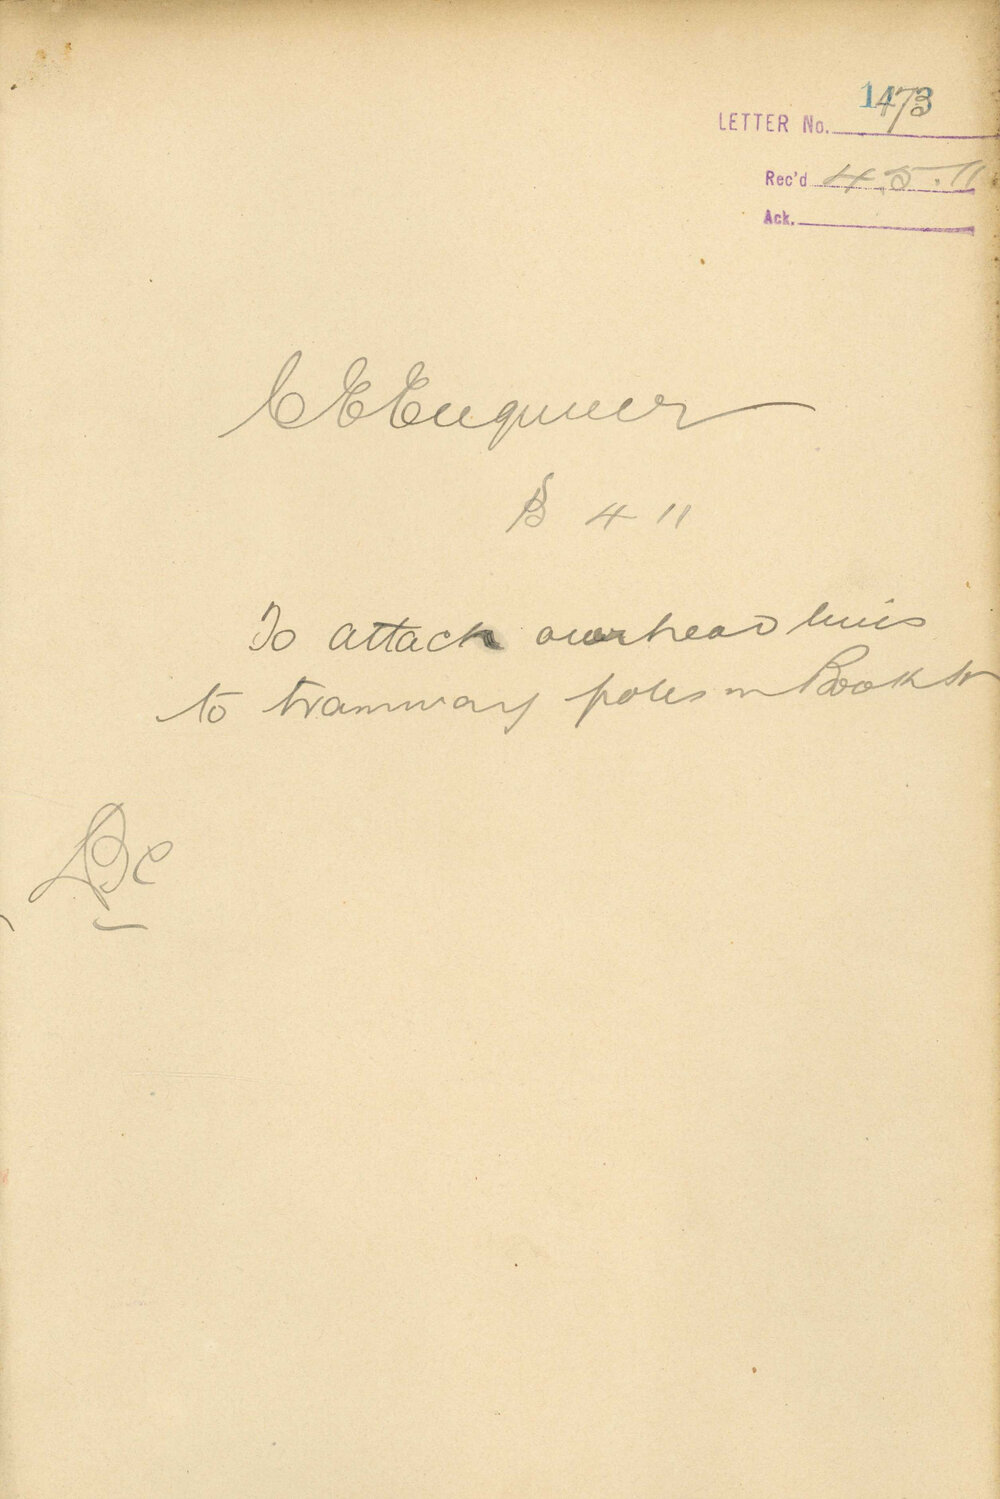 1473
LETTER No.
Rec'd 4.5.11
Ack.
C E Engineer
4 11
To attach overhead lines
to tramway poles in Book St